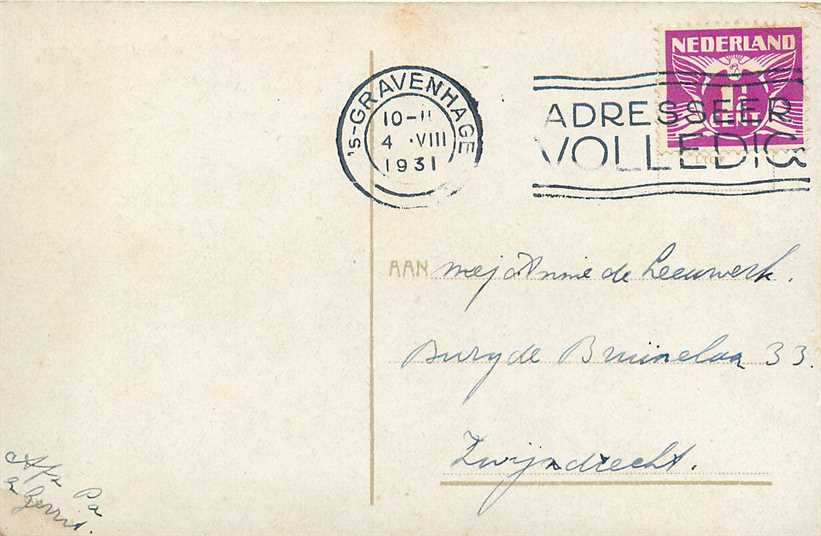 NEDERLAND
1½
's-GRAVENHAGE
10-11
4 VIII
1931
ADRESSEER
VOLLEDIG
AAN mej Annie de Leeuwerk.
Burg de Bruinelaan 33.
Zwijndrecht.
Afz Pa
Gerrit.